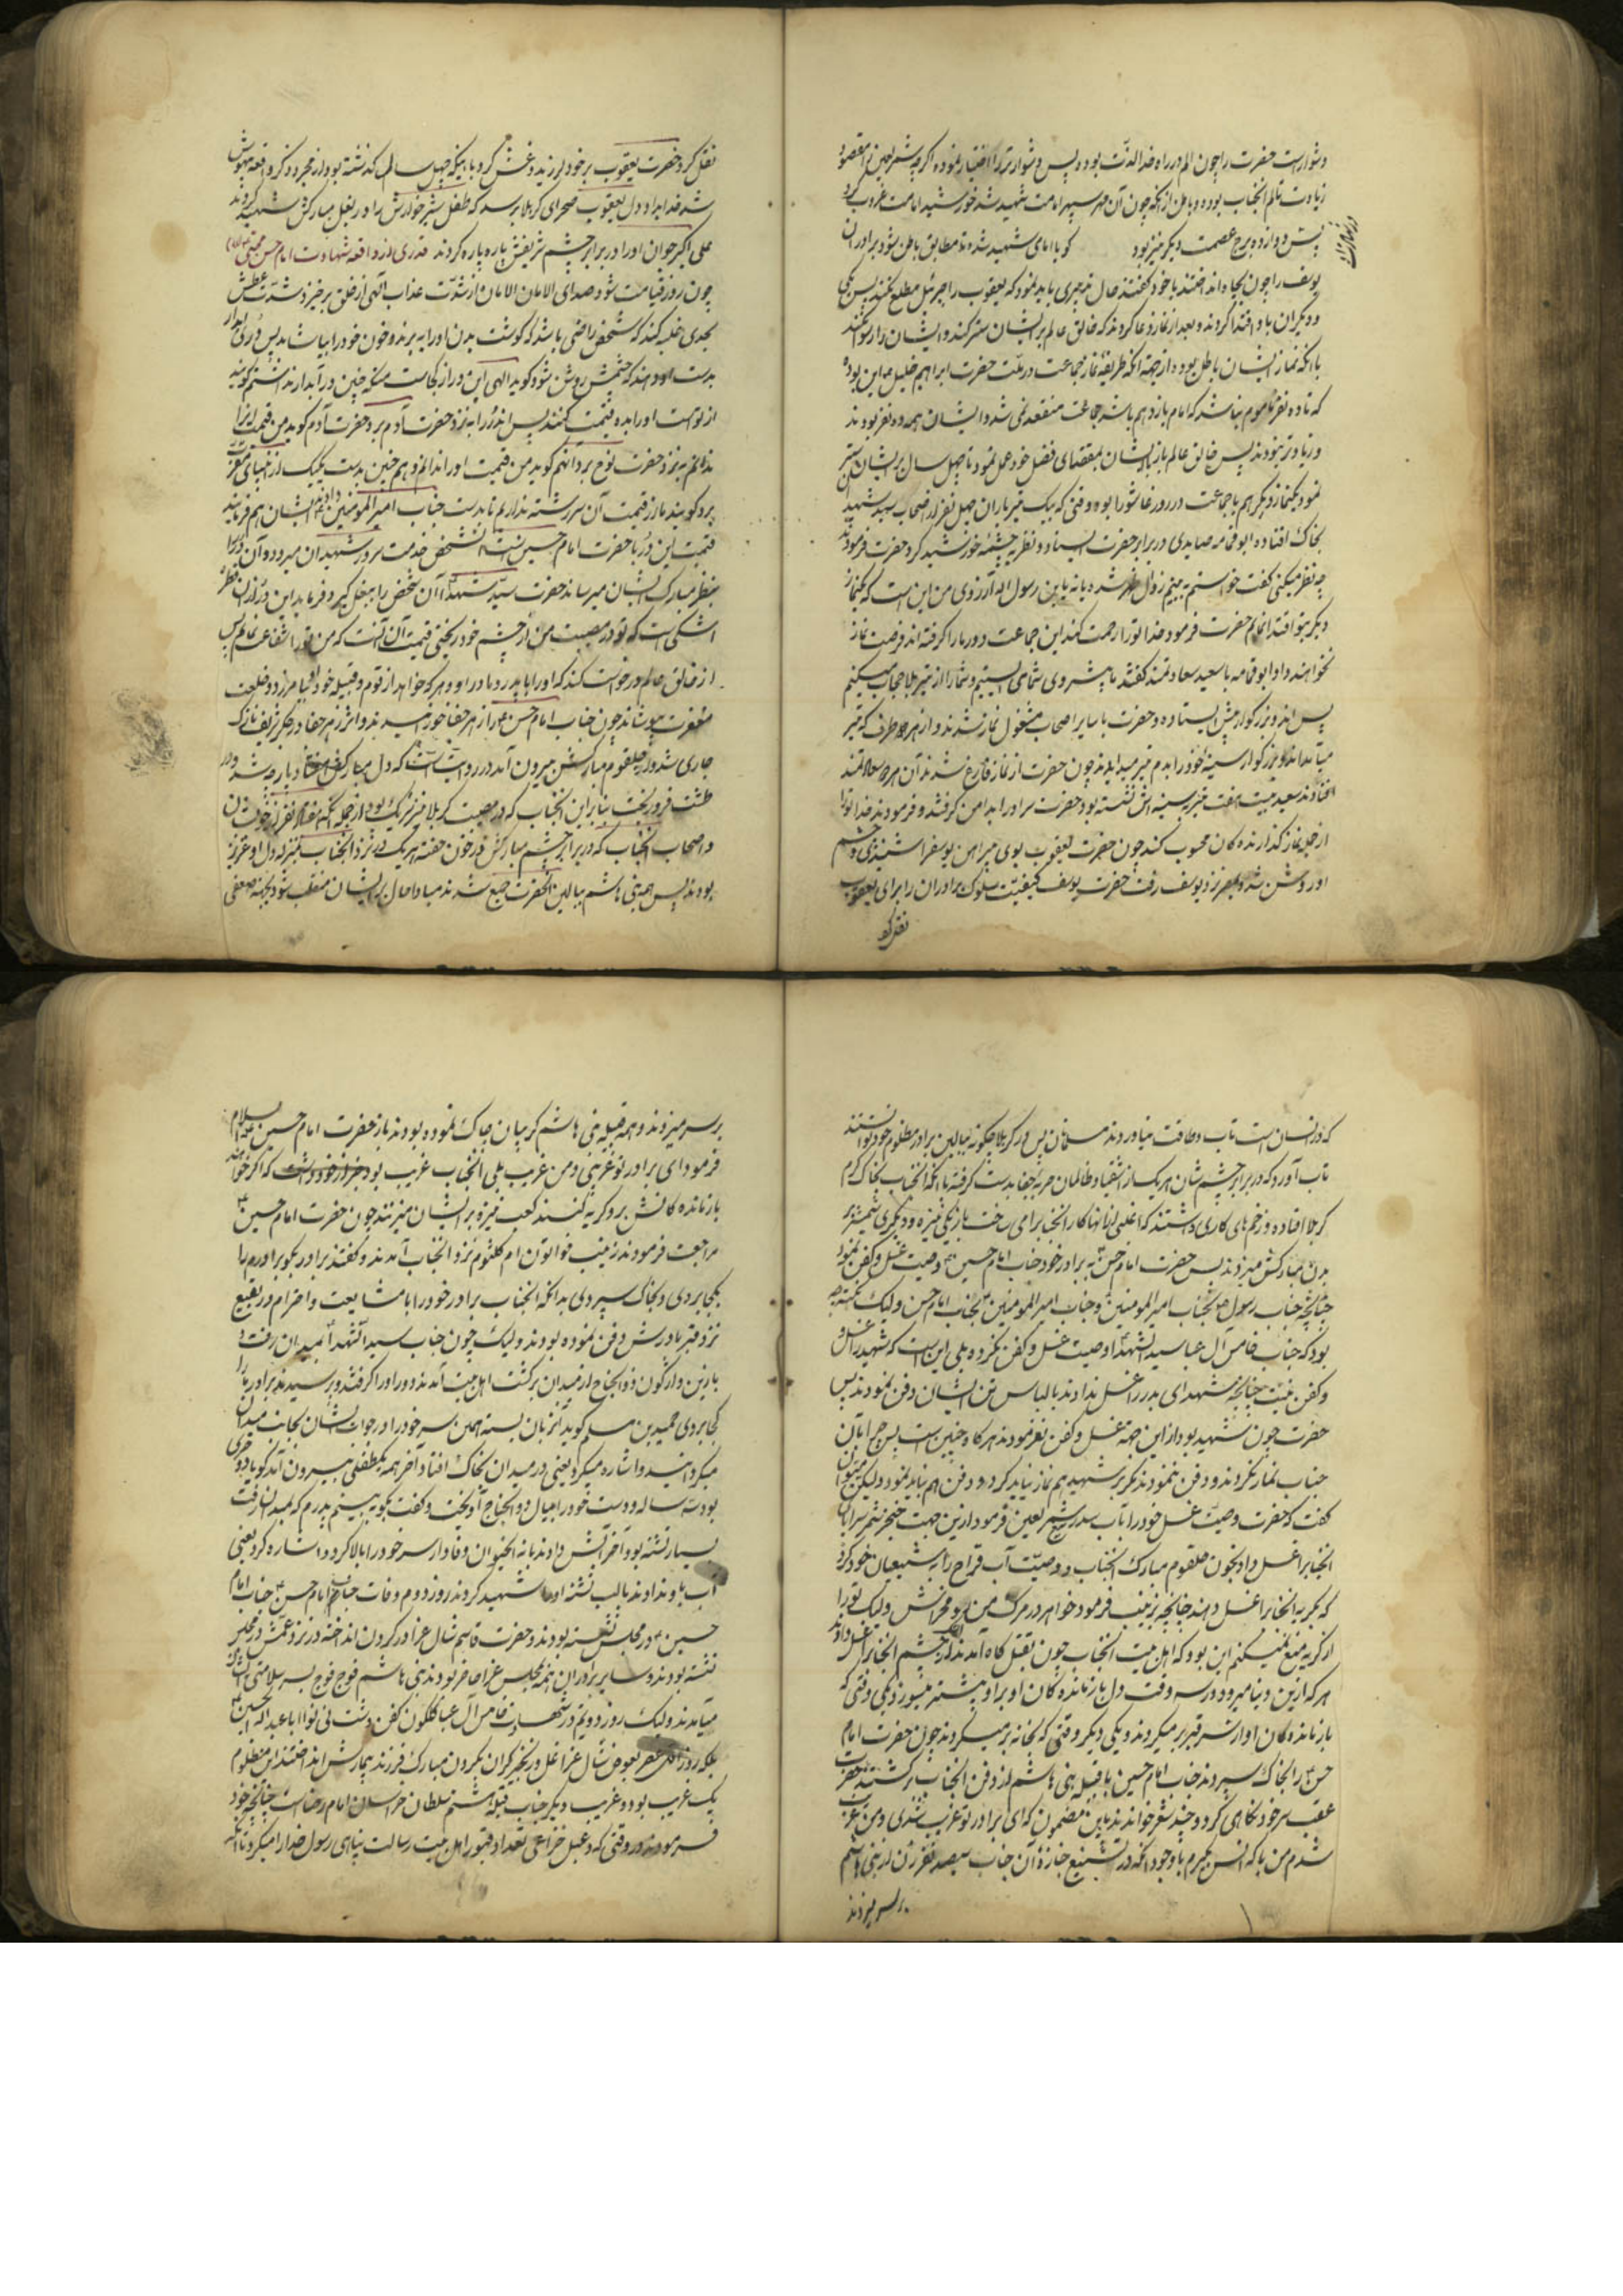 دشوارست حضرت را چون الم در راه خدا لذت بوده پس دشوارتر را اختیار نموده اگرچه شمر لعین را مقصود
زیادت تالم انجناب بوده و باطن از آنکه چون آن مهر سپهر امامت شهید شد خورشید امامت غروب کرد
پیش دوازده برج عصمت دیگر نیز بود کویا امامی شهید شده تا مطابق باطن شود برادران
یوسف را چون بچاه انداختند با خود گفتند حال تدبیری باید نمود که یعقوب را جبرئیل مطلع نکند پس یکی
و دیگران باو اقتدا کردند و بعد از نماز دعا کردند که خالق عالم بر ایشان ستر کند و ایشان را رسوا نکند
با آنکه نماز ایشان باطل بوده از جهة آنکه طریقهٔ نماز جماعت در ملت حضرت ابراهیم خلیل این بوده
که تا ده نفر ماموم نباشد که امام یازدهم باشد جماعت منعقد نمی شد و ایشان همه ده نفر بودند
و زیادتر نبودند پس خالق عالم باز بایشان بمقتضای فضل خود عمل نمود تا چهل سال بر ایشان ستر
نمود یکنماز دیگر هم با جماعت در روز عاشورا بود وقتی که بیک تیرباران چهل نفر از اصحاب سید شهیدان
بخاک افتاده ابو ثمامه صایدی در برابر حضرت ایستاد و نظر بچشمهٔ خورشید کرد حضرت فرمودند
چه نظر میکنی گفت خواستم به بینم زوال ظهر شد یا نه یابن رسول اله آرزوی من این است که یکنماز
دیگر بتو اقتدا نمایم حضرت فرمود خدا تو را رحمت کند این جماعت دور ما را گرفته اند فرصت نماز
نخواهند داد ابو ثمامه با سعید سعادتمند گفتند ما پیش روی شما می ایستیم و شما را از تیر بلا حجاب میکنیم
پس آندو بزرگوار پیش ایستاده و حضرت با سایر اصحاب مشغول نماز شدند و از هر طرف که تیر
میآمد آندو بزرگوار سینه خود را بدم تیر میدادند چون حضرت از نماز فارغ شدند آن هر دو سعادتمند
افتادند سعید بیست هفت تیر بر سینه اش نشسته بود حضرت سر او را بدامن گرفتند و فرمودند خدا تو را
از جمله نماز گذارنده کان محسوب کند چون حضرت یعقوب بوی پیراهن یوسف را شنیدی و چشم
او روشن شد و بمصر نزد یوسف رفت حضرت یوسف کیفیت سلوک برادران را برای یعقوب
نقل کرد
نقل کرد حضرت یعقوب بر خود لرزید و غش کرد با اینکه چهل سال گذشته بود و از مجرد ذکر واقعه بیهوش
شد فدایراد دل یعقوب صحرای کربلا برسد که طفل شیرخوارش را در بغل مبارکش شهید کردند
علی اکبر جوان او را در برابر چشم شریفش پاره پاره کردند قدری از واقعه شهادت امام حسن مجتبی
چون روز قیامت شود صدای الامان الامان از شدت عذاب الهی از خلق برخیزد شدت عطش
بحدی غلبه کند که شخص راضی باشد که گوشت بدن او را ببرند و خون خود را بیاشامد پس دُرّی آبدار
بدست او دهند که چشمش روشن شود گوید الهی این دُر از کجاست منکه چنین دُر آبدار نداشتم گویند
از تو است او را ببر قیمت کنند پس آندُر را به نزد حضرت آدم برد حضرت آدم گوید من قیمت این را
ندانم به نزد حضرت نوح برد آنهم گوید من قیمت او را ندانم و هم چنین بدست یکیک از انبیای
برد گویند ما از قیمت آن سررشته نداریم تا بدست جناب امیر المومنین دهند ایشان هم فرمایند
قیمت این دُر با حضرت امام حسین است آنشخص خدمت سرور شهیدان میرود و آن دُر را
بنظر مبارک ایشان میرساند حضرت سید شهدا آن شخص را ببغل گیرد و فرماید این دُر از آن قطره
اشکی است که تو در مصیبت من از چشم خود ریختی قیمت آن آنست که من تو را شفاعت نمایم پس
از خالق عالم درخواست کند که او را با پدر و مادر او و هر که خواهد از قوم و قبیله خود بیامرزد و خلعت
مغفرت پوشاند چون جناب امام حسن را زهر جفا خورانیدند و اثر زهر جفا در جگر شریف نازک
جاری شد و از حلقوم مبارکش بیرون آمد در روایت است که دل مبارکش هفتاد پارچه شد و در
طشت فرو ریخت بنابراین انجناب که در مصیبت کربلا نیز شریک بود از جمله آنکه هفتاد نفر از خویشان
و اصحاب انجناب که در برابر چشم مبارکش در خون خفته هر یک در نزد انجناب بمنزله دل او عزیز
بودند پس همه بنی هاشم ببالین آنحضرت جمع شدند مبادا حال بر ایشان منقلب شود بجهة ضعفی
که در انسان است تاب و طاقت نیاوردند مسلمانان پس در کربلا چگونه ببالین برادر مظلوم خود توانستند
تاب آورد که در برابر چشم شان هر یک از اشقیا و ظالمان حربه جفا بدست گرفته با آنکه انجناب بخاک گرم
کربلا افتاده و زخم های کاری داشتند که اغلبی از آنها کار انجناب را می ساخت باز یکی نیزه و دیگری شمشیر بر
بدن مبارکش میزدند پس حضرت امام حسن به برادر خود جناب امام حسین وصیت غسل و کفن نمود
چنانچه جناب رسول بجناب امیر المومنین و جناب امیر المومنین بجناب امام حسن ولیک
بود که جناب خامس آل عبا سید الشهدا وصیت غسل و کفن نکرده بلی این است که شهید را غسل
و کفن نیست چنانچه شهدای بدر را غسل ندادند با لباس تن ایشان دفن نمودند پس
حضرت چون شهید بود از این جهة غسل و کفن نفرمودند هر گاه چنین است پس چرا بآن
جناب نماز نکردند و دفن ننمودند مگر بر شهید هم نماز نباید کرد و دفن هم نباید نمود ولیکن میتوان
گفت که حضرت وصیت غسل خود را تاب سر شمر لعین فرمود ازین جهت خنجر شمر سراپای
انجناب را غسل داد بخون حلقوم مبارک انجناب و وصیت آب قراح را به شیعیان خود کرد
که بگریه انجناب را غسل دهند چنانچه بزینب فرمود خواهر در مرگ من رو مخراش ولیک تو را
از گریه منع نمیکنم این بود که اهل بیت انجناب چون بقتل گاه آمدند از اشک چشم انجناب را غسل دادند
هر که ازین دنیا میرود در سه وقت دل بازمانده کان او بر او بیشتر میسوزد یکی وقتی که
بازمانده کان او از سر قبر بر میگردند و یکی دیگر وقتی که بخانه بر میگردند چون حضرت امام
حسن را بخاک سپردند جناب امام حسین با قبیله بنی هاشم از دفن انجناب برگشتند حضرت
عقب سر خود نگاهی کرد و چند شعر خواندند باین مضمون که ای برادر تو غریب شدی و من غریب
شدم من با که انس بگیرم با وجود آنکه در تشییع جنازهٔ آن جناب سیصد نفر زن از بنی هاشم
بر سر میزدند
بر سر میزدند و همه قبیله بنی هاشم گریبان چاک نموده بودند باز حضرت امام حسین علیه السلام
فرمود ای برادر تو غریبی و من غریب بلی انجناب غریب بود
بازمانده کانش بر او گریه کنند کعب نیزه بر ایشان میزنند چون حضرت امام حسین
مراجعت فرمودند زینب خواتون ام کلثوم نزد انجناب آمدند و گفتند برادر بگو برادرم را
بکجا بردی و بخاک سپردی بدانکه انجناب برادر خود را با مشایعت و احترام در بقیع
نزد قبر مادرش دفن نموده بودند ولیک چون جناب سید الشهدا بمیدان رفت و
با زین واژگون ذوالجناح از میدان برگشت اهل بیت آمدند دور او را گرفتند و پرسیدند برادر ما را
کجا بردی حمید بن مسلم گوید آن زبان بسته همین سر خود را در جواب ایشان بجانب میدان
میگردانید و اشاره میکرد یعنی در میدان بخاک افتاد آخر همه یکطفلی بیرون آمد گویا دختری
بود سه ساله و دست خود را بیال ذوالجناح آویخت و گفت بگو به بینم پدرم که بمیدان رفت
بسیار تشنه بود آخر آبش دادند یا نه انحیوان وفادار سر خود را بالا کرد و اشاره کرد یعنی
آب باو ندادند با لب تشنه او را شهید کردند روز دوم وفات جناب امام حسن جناب امام
حسین در مجلس نشسته بودند و حضرت قاسم شال عزا در گردن انداخته در نزد عمش در مجلس
نشسته بودند و سایر برادران همه بمجلس عزا حاضر بودند بنی هاشم فوج فوج بسر سلامتی ایشان
میآمدند ولیک روز دویم در شهادت خامس آل عبا گلگون کفن دشت نینوا ابا عبد اله الحسین
بلکه روز بعوض شال عزا غل و زنجیر گران بگردن مبارک فرزند بیمارش انداختند آن مظلوم
یک غریب بود و غریب دیگر جناب قبله هشتم سلطان خراسان امام رضا است چنانچه خود
فرمودند در وقتی که دعبل خزاعی تعداد قبور اهل بیت رسالت پناهی رسول خدا را میکرد تا آنکه